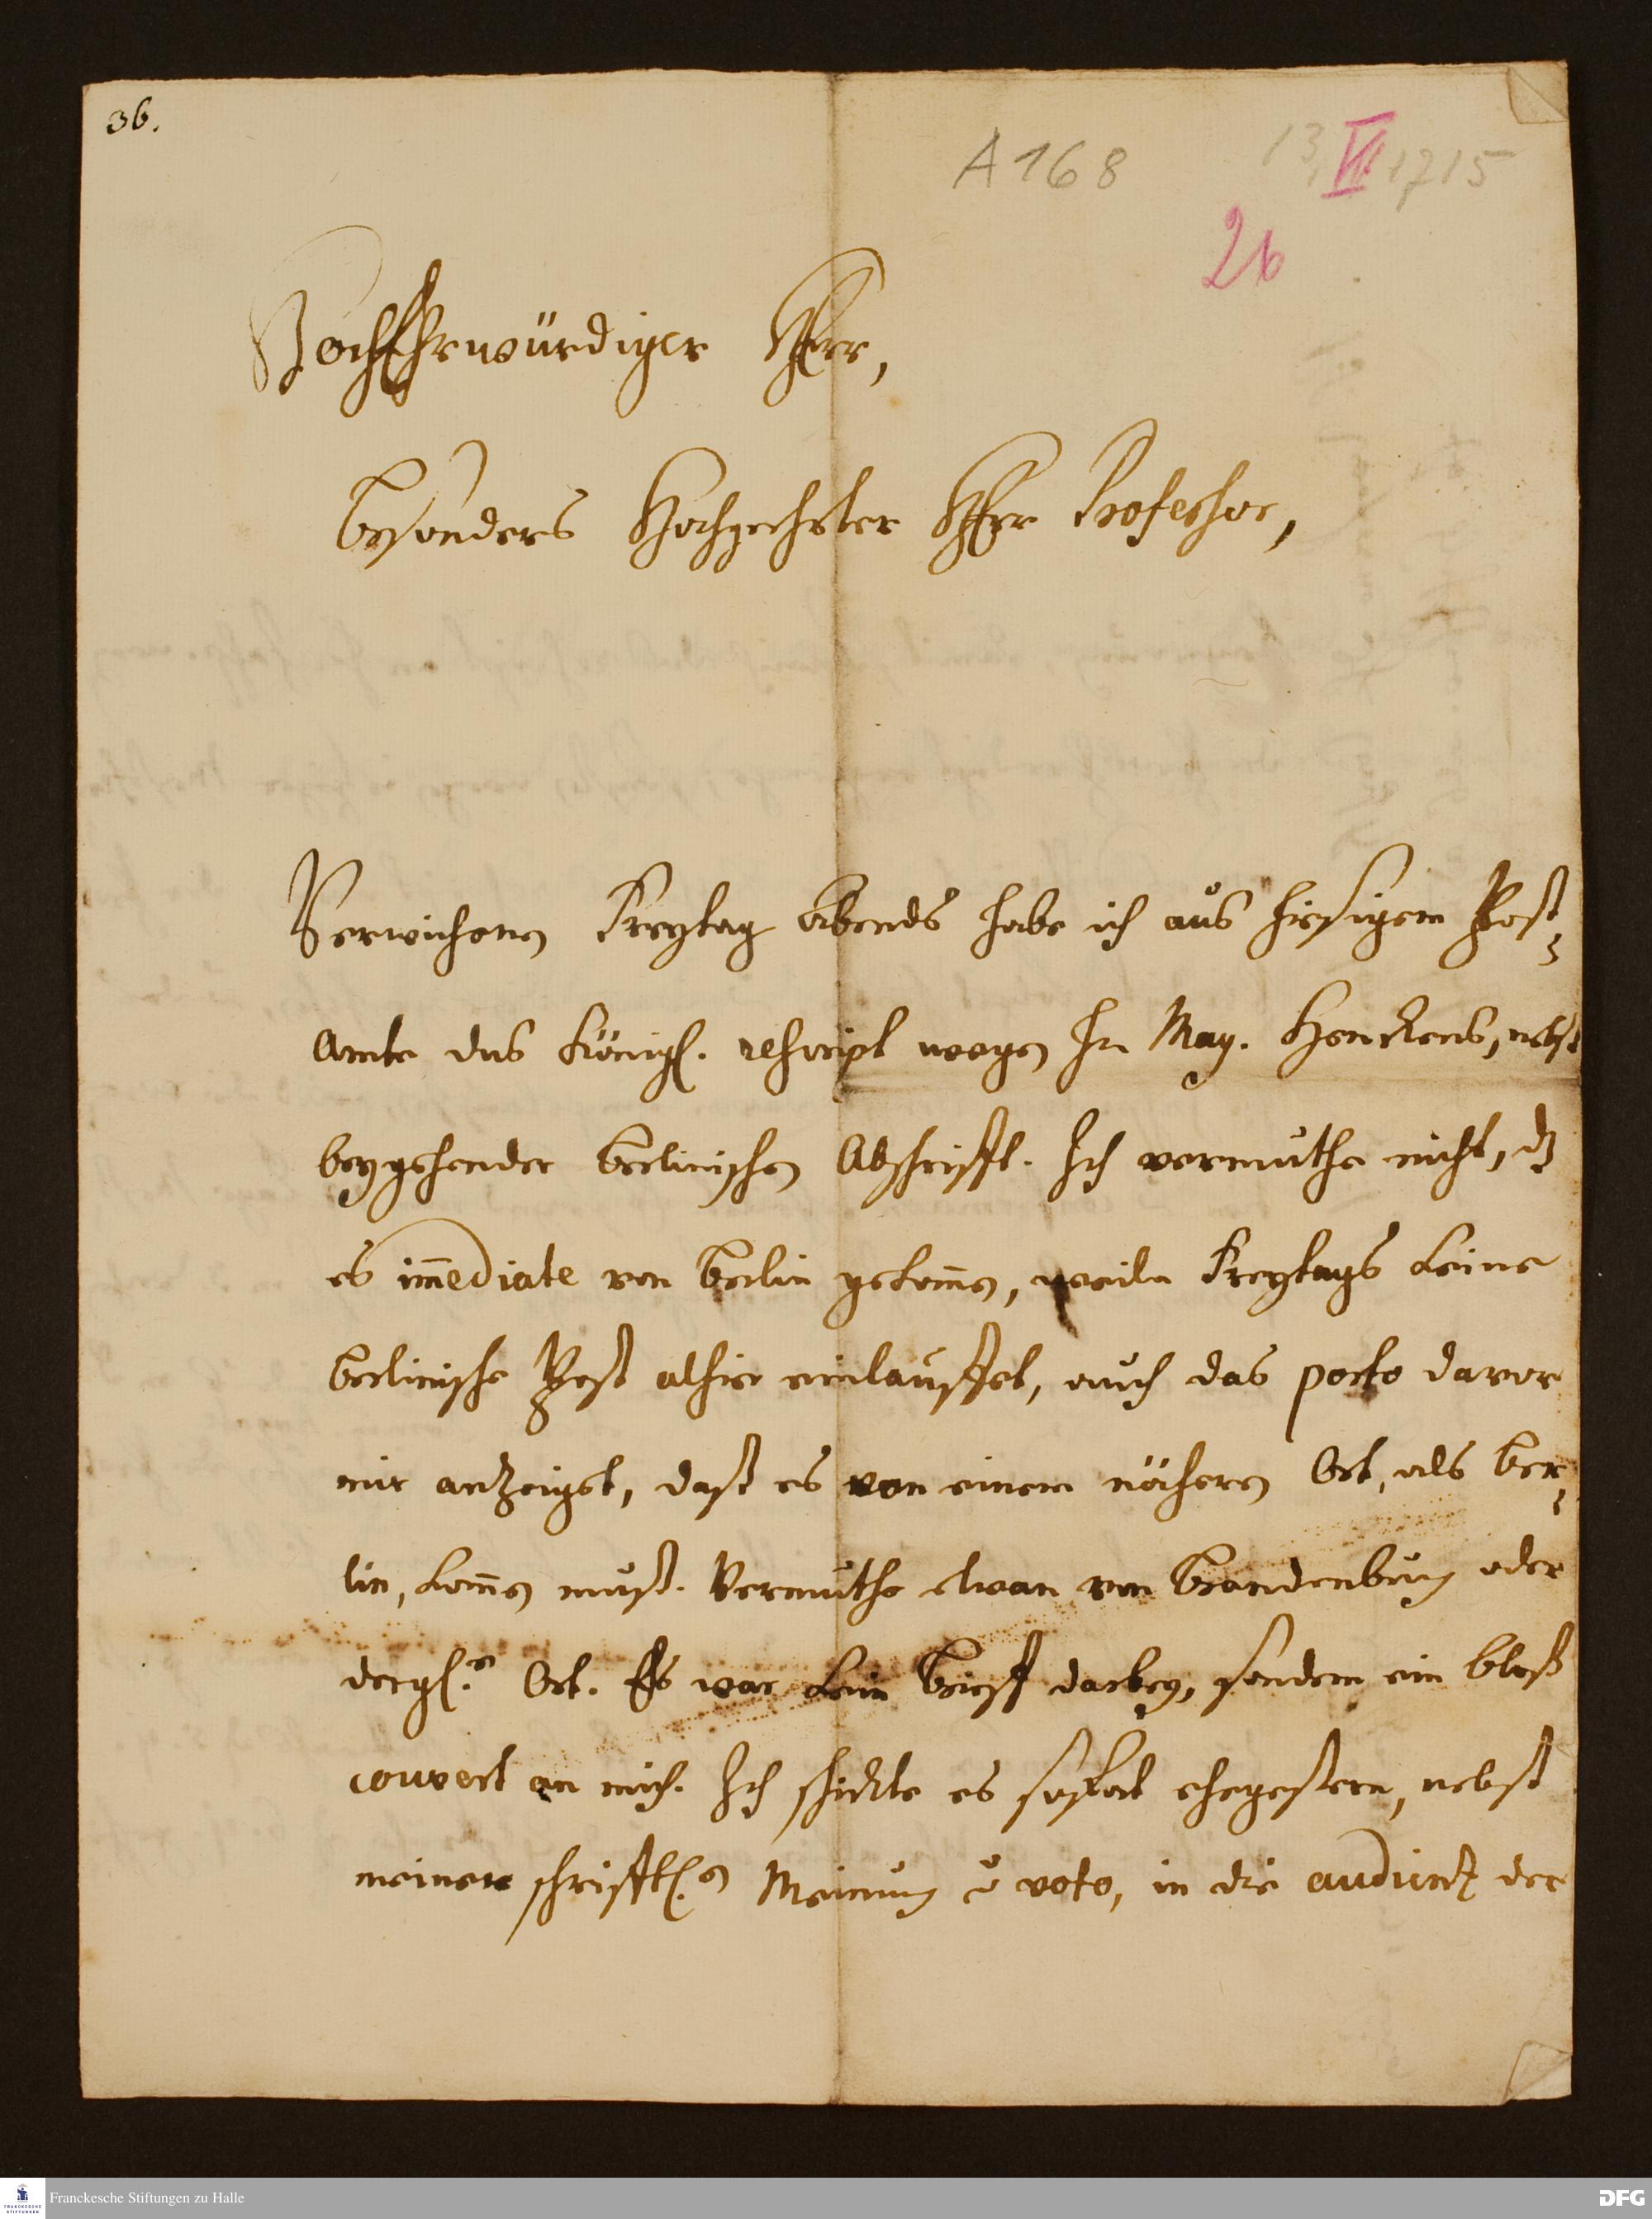 36.
A 168
13. VII 1715
26
HochEhrwürdiger HErr,
besonders Hochgeehrter HErr Professor,
Verwichenen Freytag Abends habe ich aus hiesigem Post-
Amte das Königl. rescript wegen Hn Mag. Henckens, nebst
beygehender berlinischen Abschrifft. Ich vermuthe nicht, dz
es im̄ediate von Berlin gekom̄en, weiln Freytags keine
berlinische Post alhier einlauffet, auch das porto davor
mir anzeiget, dast es von einem näheren Ort, als Ber-
lin, kom̄en must. Vermuthe etwan von Brandenburg oder
dergl.en Ort. Es war kein Brieff darbey, sondern ein bloß
couvert an mich. Ich schickte es sofort ehegestern, nebst
meiner schrifftl.en Meinung u voto, in die audientz der
Franckesche Stiftungen zu Halle
DFG